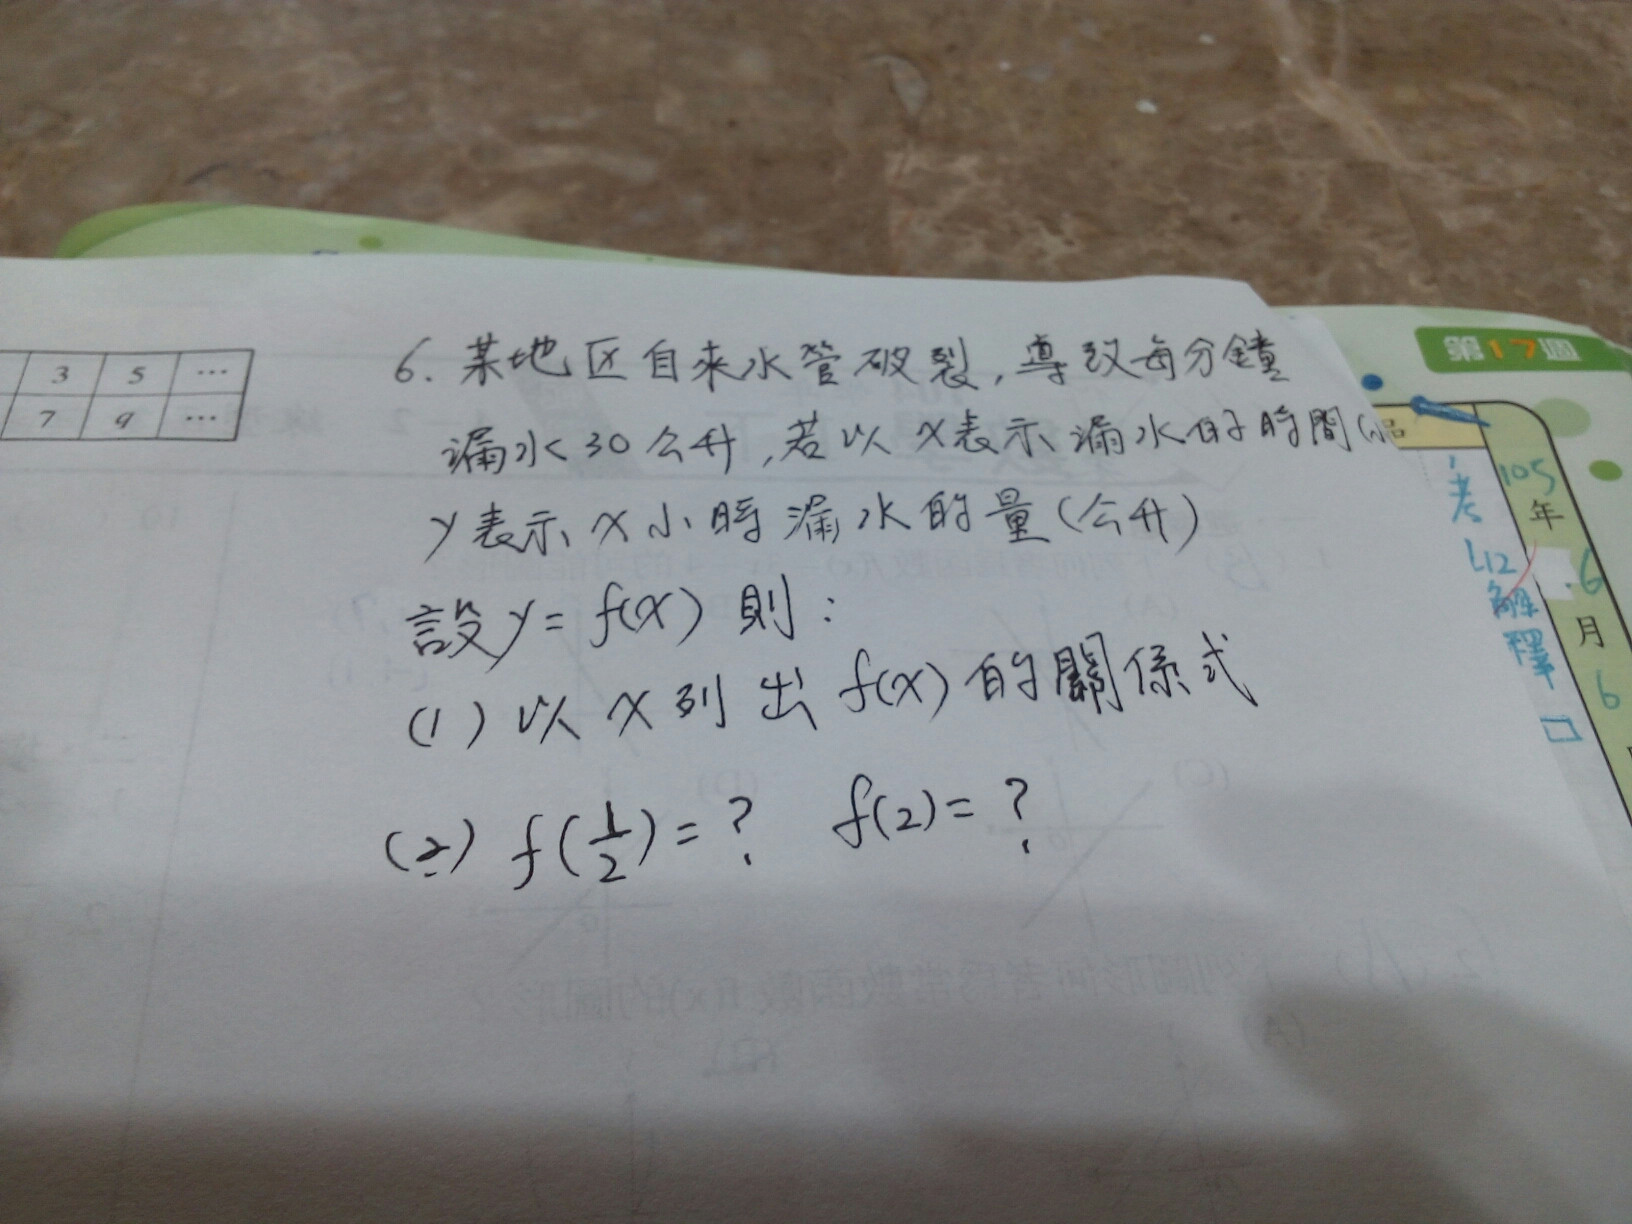 3 5 …
7 9 …
6. 某地区自來水管破裂,導致每分鐘
漏水30公升,若以x表示漏水的時間(
y表示x小時漏水的量(公升)
設y=f(x)則:
(1)以x列出f(x)的關係式
(2) f(1/2)=? f(2)=?
第17週
105
年
6
月
6
考
L12
解
釋